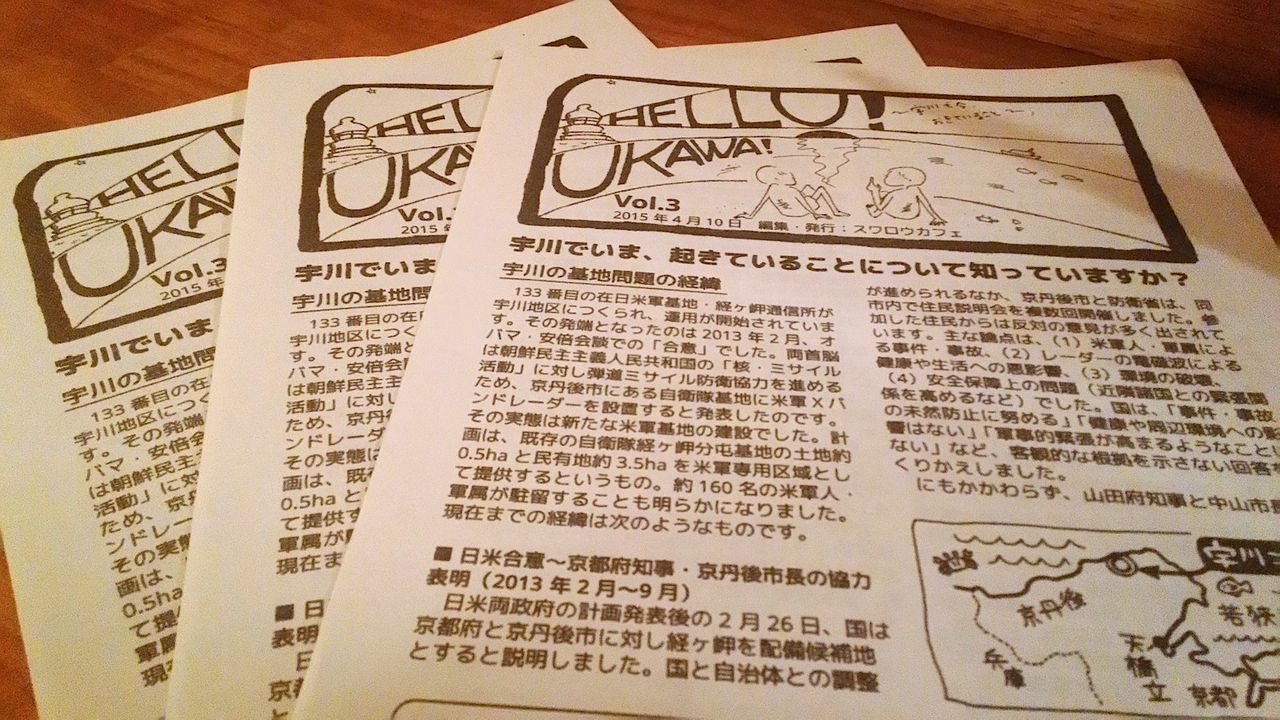 HELLO!
UKAWA!
Vol.3
2015年4月10日 編集・発行:スワロウカフェ
宇川でいま、起きていることについて知っていますか?
宇川の基地問題の経緯
133番目の在日米軍基地・経ヶ岬通信所が
宇川地区につくられ、運用が開始されていま
す。その発端となったのは2013年2月、オ
バマ・安倍会談での「合意」でした。両首脳
は朝鮮民主主義人民共和国の「核・ミサイル
活動」に対し弾道ミサイル防衛協力を進める
ため、京丹後市にある自衛隊基地に米軍Xバ
ンドレーダーを設置すると発表したのです。
その実態は新たな米軍基地の建設でした。計
画は、既存の自衛隊経ヶ岬分屯基地の土地約
0.5haと民有地約3.5haを米軍専用区域とし
て提供するというもの。約160名の米軍人・
軍属が駐留することも明らかになりました。
現在までの経緯は次のようなものです。
■ 日米合意~京都府知事・京丹後市長の協力
表明(2013年2月~9月)
日米両政府の計画発表後の2月26日、国は
京都府と京丹後市に対し経ヶ岬を配備候補地
とすると説明しました。国と自治体との調整
が進められるなか、京丹後市と防衛省は、同
市内で住民説明会を複数回開催しました。参
加した住民からは反対の意見が多く出されて
います。主な論点は、(1)米軍人・軍属によ
る事件・事故、(2)レーダーの電磁波による
健康や生活への悪影響、(3)環境の破壊、
(4)安全保障上の問題(近隣諸国との緊張関
係を高めるなど)でした。国は、「事件・事故
の未然防止に努める」「健康や周辺環境への影
響はない」「軍事的緊張が高まるようなことは
ない」など、客観的な根拠を示さない回答を
くりかえしました。
にもかかわらず、山田府知事と中山市長
宇川
京丹後
兵庫
若狭
天橋立
京都
HELL
UKA
Vol.
2015年
宇川でいま
宇川の基地問
133番目の
宇川地区につく
す。その発端
バマ・安倍会
は朝鮮民主主
活動」に対し
ため、京丹後
ンドレーダー
その実態は
画は、既存
0.5haと
て提供す
軍属が
現在ま
■ 日
表明
日
京都
HELL
UKAW
Vol.3
2015年
宇川でいま
宇川の基地問
133番目の
宇川地区につく
す。その発端
バマ・安倍会
は朝鮮民主
活動」に対
ため、京
ンドレー
その実態
画は、
0.5ha
て提
軍属
現